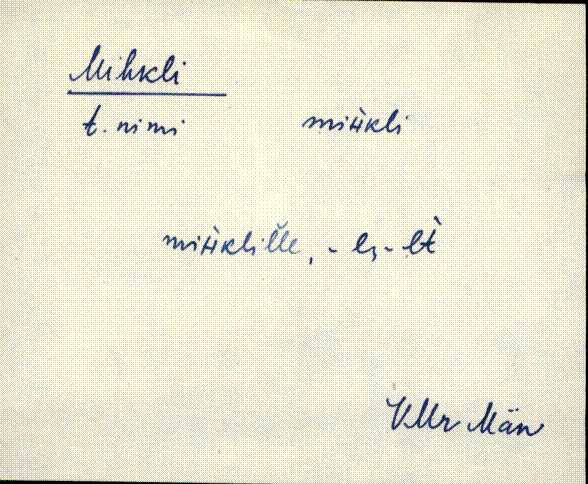 Mihkli
t. nimi miìkli
miìklil̆le, -l, -lt̀
VMr Män